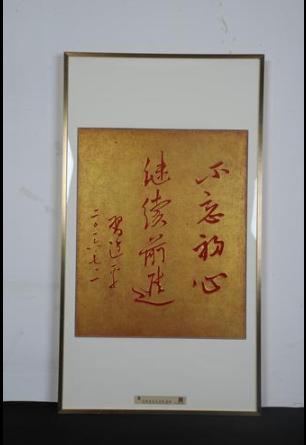 不忘初心
继续前进
习近平
二〇一六.七.一